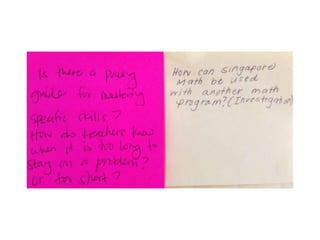 Is there a pacing
guide for mastering
specific skills?
How do teachers know
when it is too long to
stay on a problem?
or too short?
How can Singapore
Math be used
with another math
program? (Investigations)